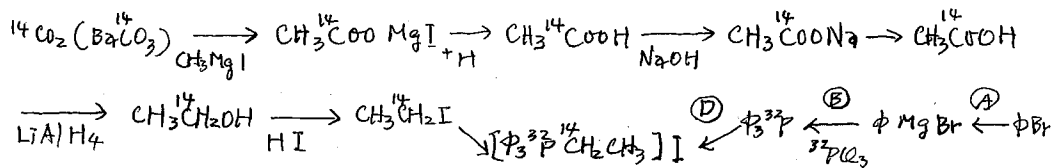 ¹⁴CO₂ (Ba¹⁴CO₃) →CH₃MgI CH₃¹⁴COO MgI →+H CH₃¹⁴COOH →NaOH CH₃¹⁴COONa → CH₃¹⁴COOH
→LiAlH₄ CH₃¹⁴CH₂OH →HI CH₃¹⁴CH₂I ↘ [Φ₃³²P¹⁴CH₂CH₃] I ↙Ⓓ Φ₃³²P ←Ⓑ ³²PCl₃ ΦMgBr ←Ⓐ ΦBr